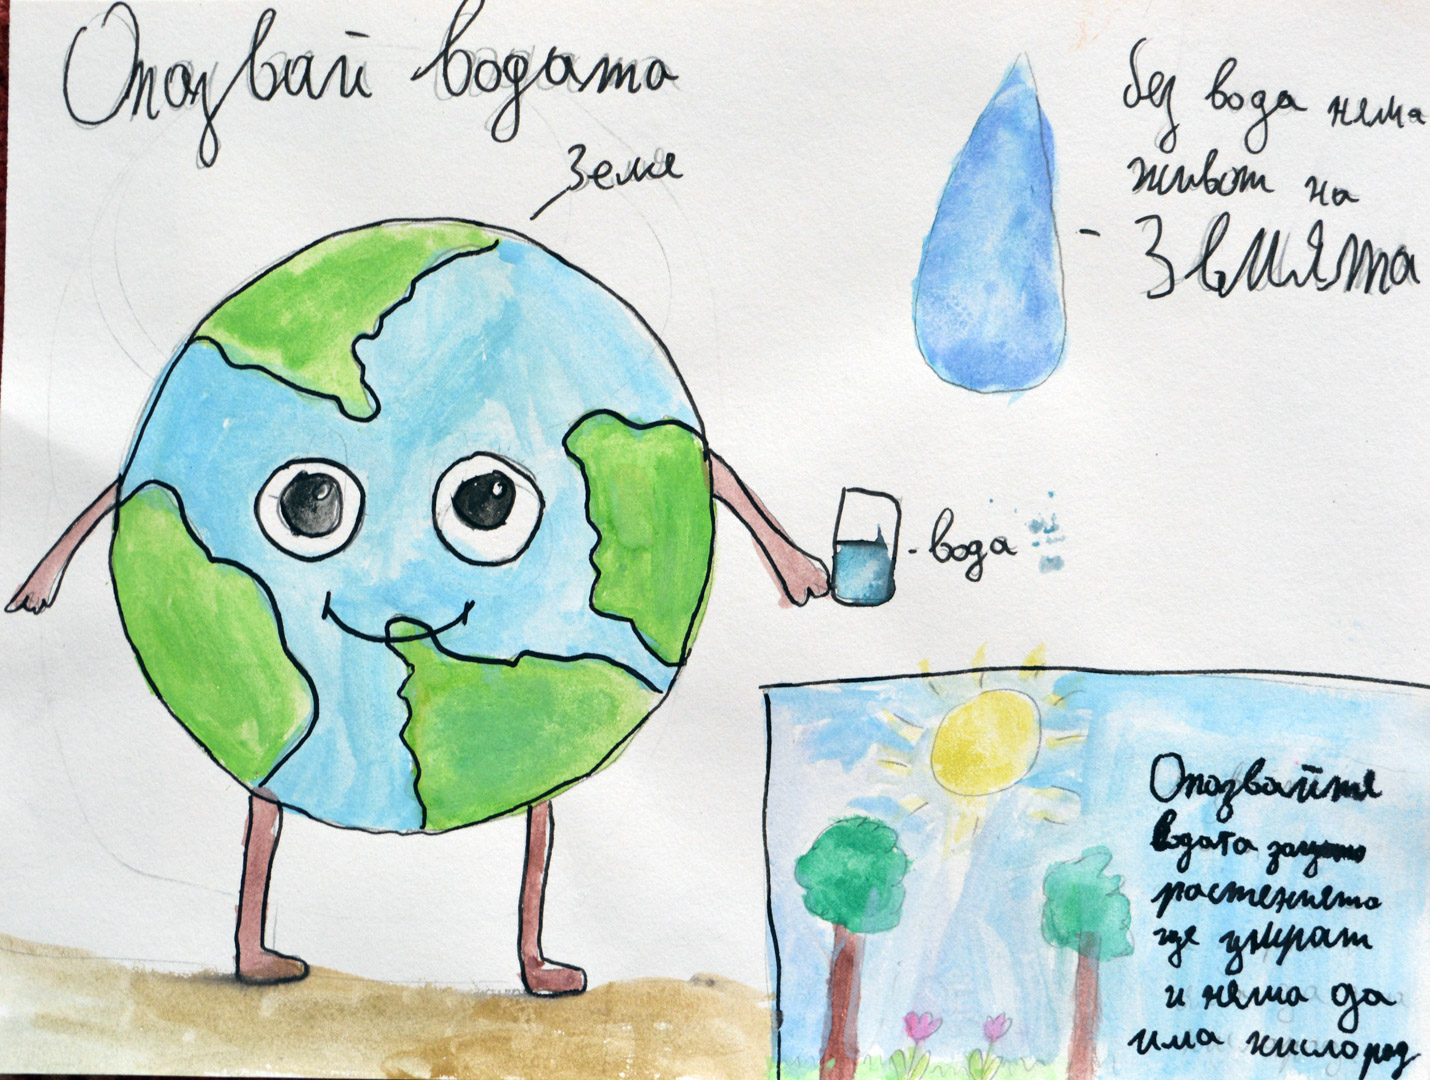 Опазвай водата
Земя
без вода няма
живот на
Земята
вода
Опазвайте
водата защото
растенията
ще умират
и няма да
има кислород